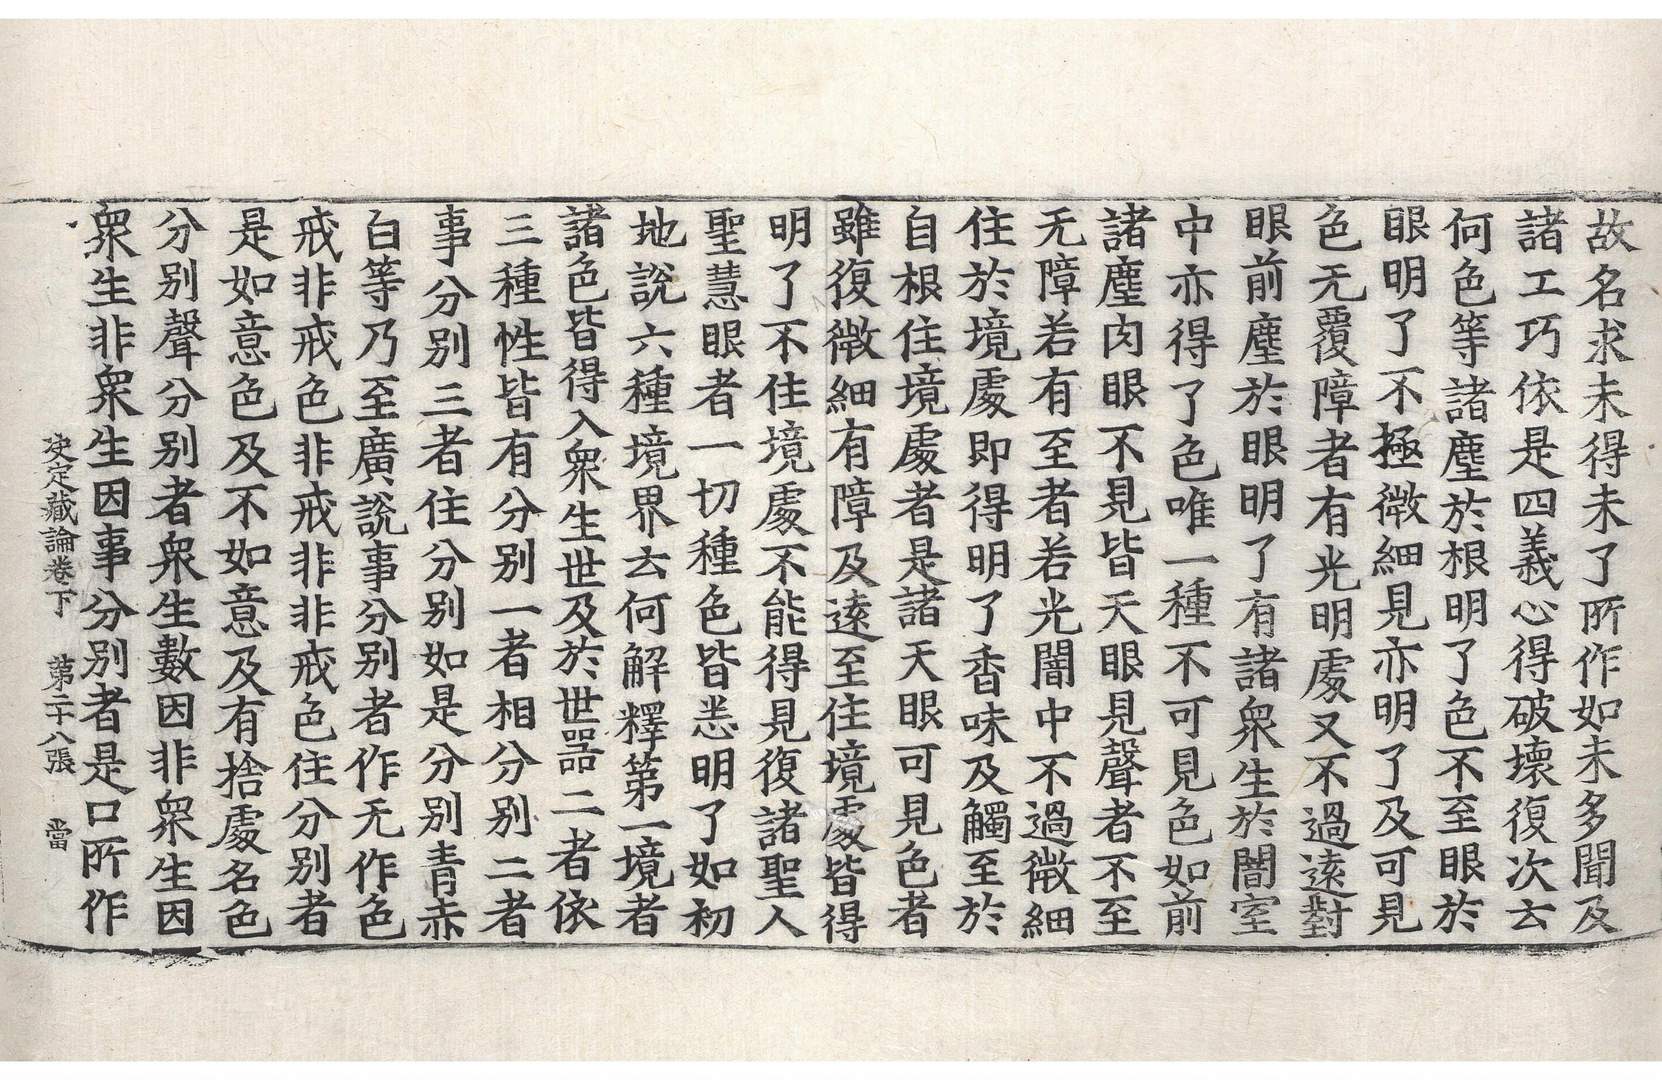 故名求未得未了所作如未多聞及
諸工巧依是四義心得破壞復次云
何色等諸塵於根明了色不至眼於
眼明了不極微細見亦明了及可見
色无覆障者有光明處又不過遠對
眼前塵於眼明了有諸衆生於闇室
中亦得了色唯一種不可見色如前
諸塵肉眼不見皆天眼見聲者不至
无障若有至者若光闇中不過微細
住於境處即得明了香味及觸至於
自根住境處者是諸天眼可見色者
雖復微細有障及遠至住境處皆得
明了不住境處不能得見復諸聖人
聖慧眼者一切種色皆悉明了如初
地說六種境界云何解釋第一境者
諸色皆得入衆生世及於世器二者依
三種性皆有分別一者相分別二者
事分別三者住分別如是分別青赤
白等乃至廣說事分別者作无作色
戒非戒色非戒非非戒色住分別者
是如意色及不如意及有捨處名色
分別聲分別者衆生數因非衆生因
衆生非衆生因事分別者是口所作
決定藏論卷下 第二十八張 當